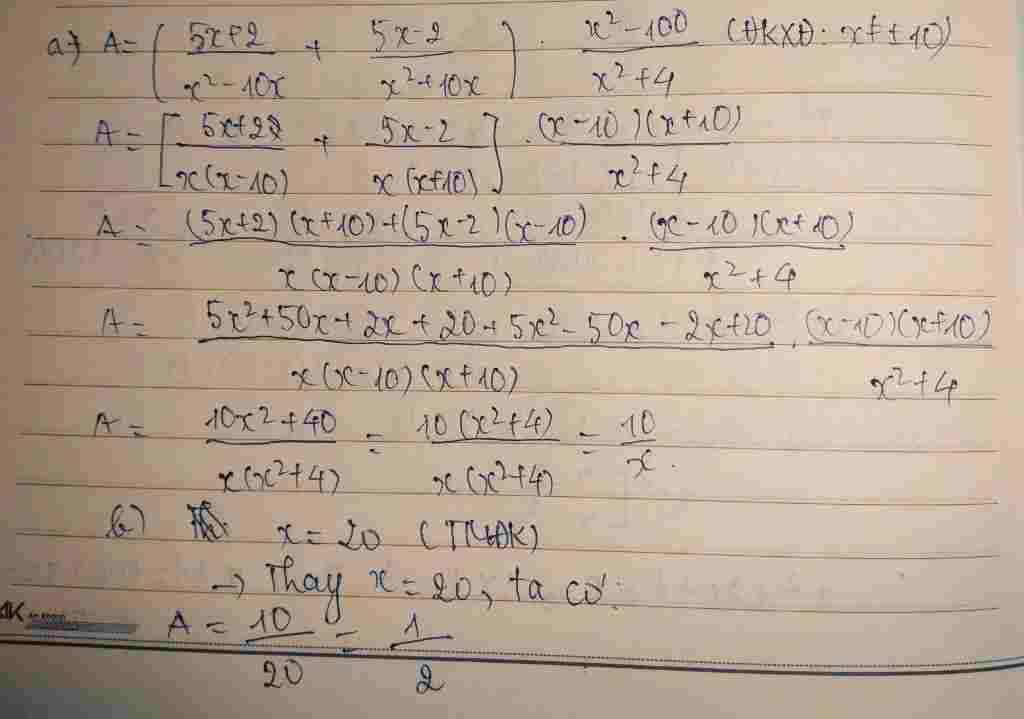 a) A = ( 5x+2 / x² - 10x + 5x-2 / x² + 10x ) . x² - 100 / x² + 4 (ĐKXĐ: x ≠ ± 10)
A = [ 5x+2 / x(x-10) + 5x-2 / x(x+10) ] . (x-10)(x+10) / x² + 4
A = (5x+2)(x+10)+(5x-2)(x-10) / x(x-10)(x+10) . (x-10)(x+10) / x² + 4
A = 5x² + 50x + 2x + 20 + 5x² - 50x - 2x + 20 / x(x-10)(x+10) . (x-10)(x+10) / x² + 4
A = 10x² + 40 / x(x²+4) = 10(x²+4) / x(x²+4) = 10 / x .
b) x = 20 (TMĐK)
→ Thay x = 20, ta có:
A = 10 / 20 = 1 / 2